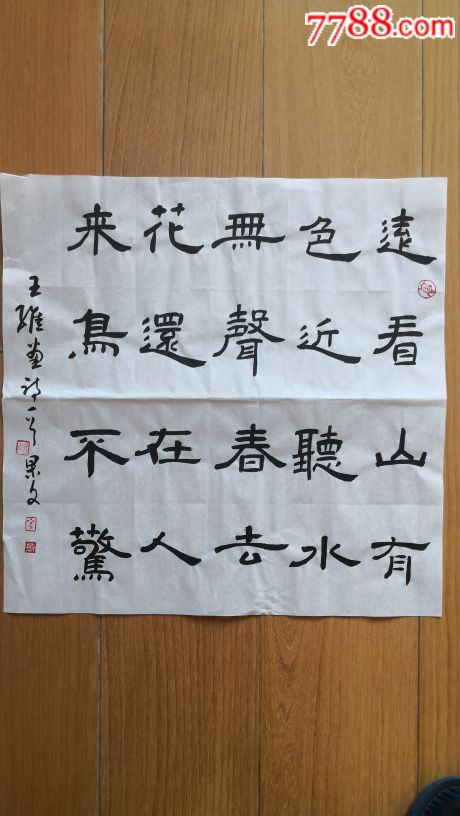 7788.com
遠看山有
色近聽水
無聲春去
花還在人
来鳥不驚
王維畫詩一首 果文